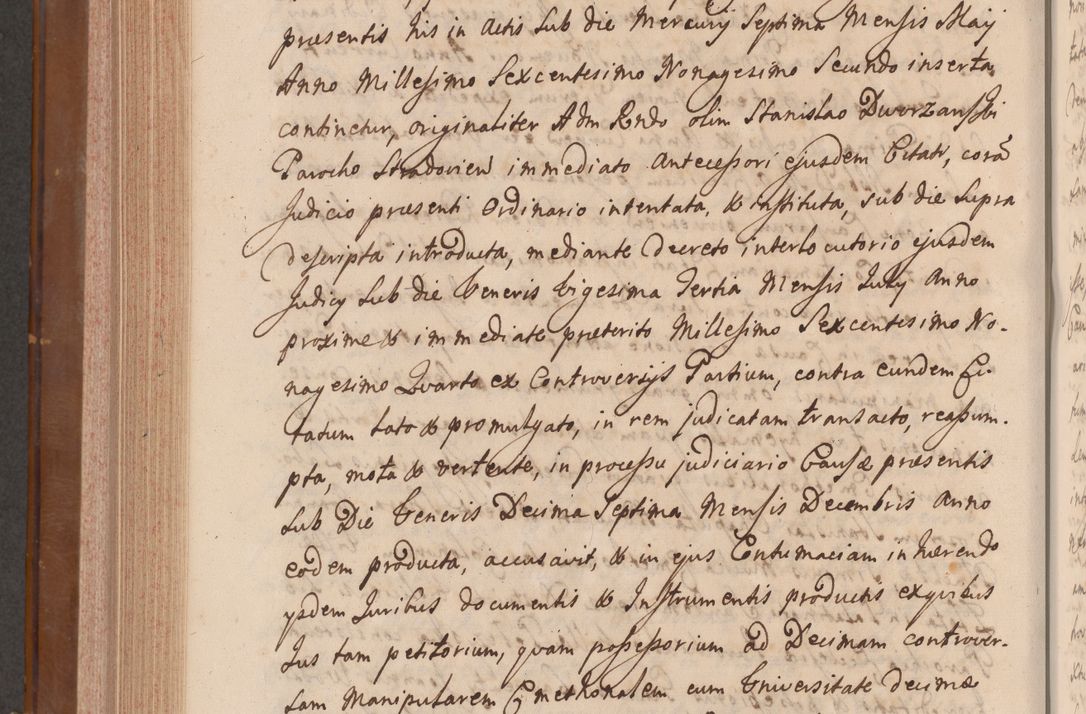 præsentis his in Actis sub die Mercurij Septima Mensis Maij
Anno Millesimo Sexcentesimo Nonagesimo Secundo inserta
continetur, originaliter Adm Rndo olim Stanislao Dworzanski
Parocho Stradovien immediato Antecessori ejusdem Citati, corã
Judicio præsenti Ordinario intentata, & instituta, sub die supra
descripta introducta, mediante Decreto interlocutorio ejusdem
Judicij sub die Veneris Vigesima Tertia Mensis July Anno
proxime & immediate præterito Millesimo Sexcentesimo No-
nagesimo Quarto ex Controversijs Partium, contra eundem Ci-
tatum lato & promulgato, in rem judicatam transacto, reassum-
pta, mota & vertente, in processu judiciario Causæ præsentis
sub Die Veneris Decima Septima Mensis Decembris Anno
eodem producta, accusavit, & in ejus Contumaciam inhærendo
ysdem Juribus documentis & Instrumentis productis exquibus
Jus tam petitorium, quam possessorium ad Decimam controver-
sam Manipularem Cmethonalem cum Universitate decimæ